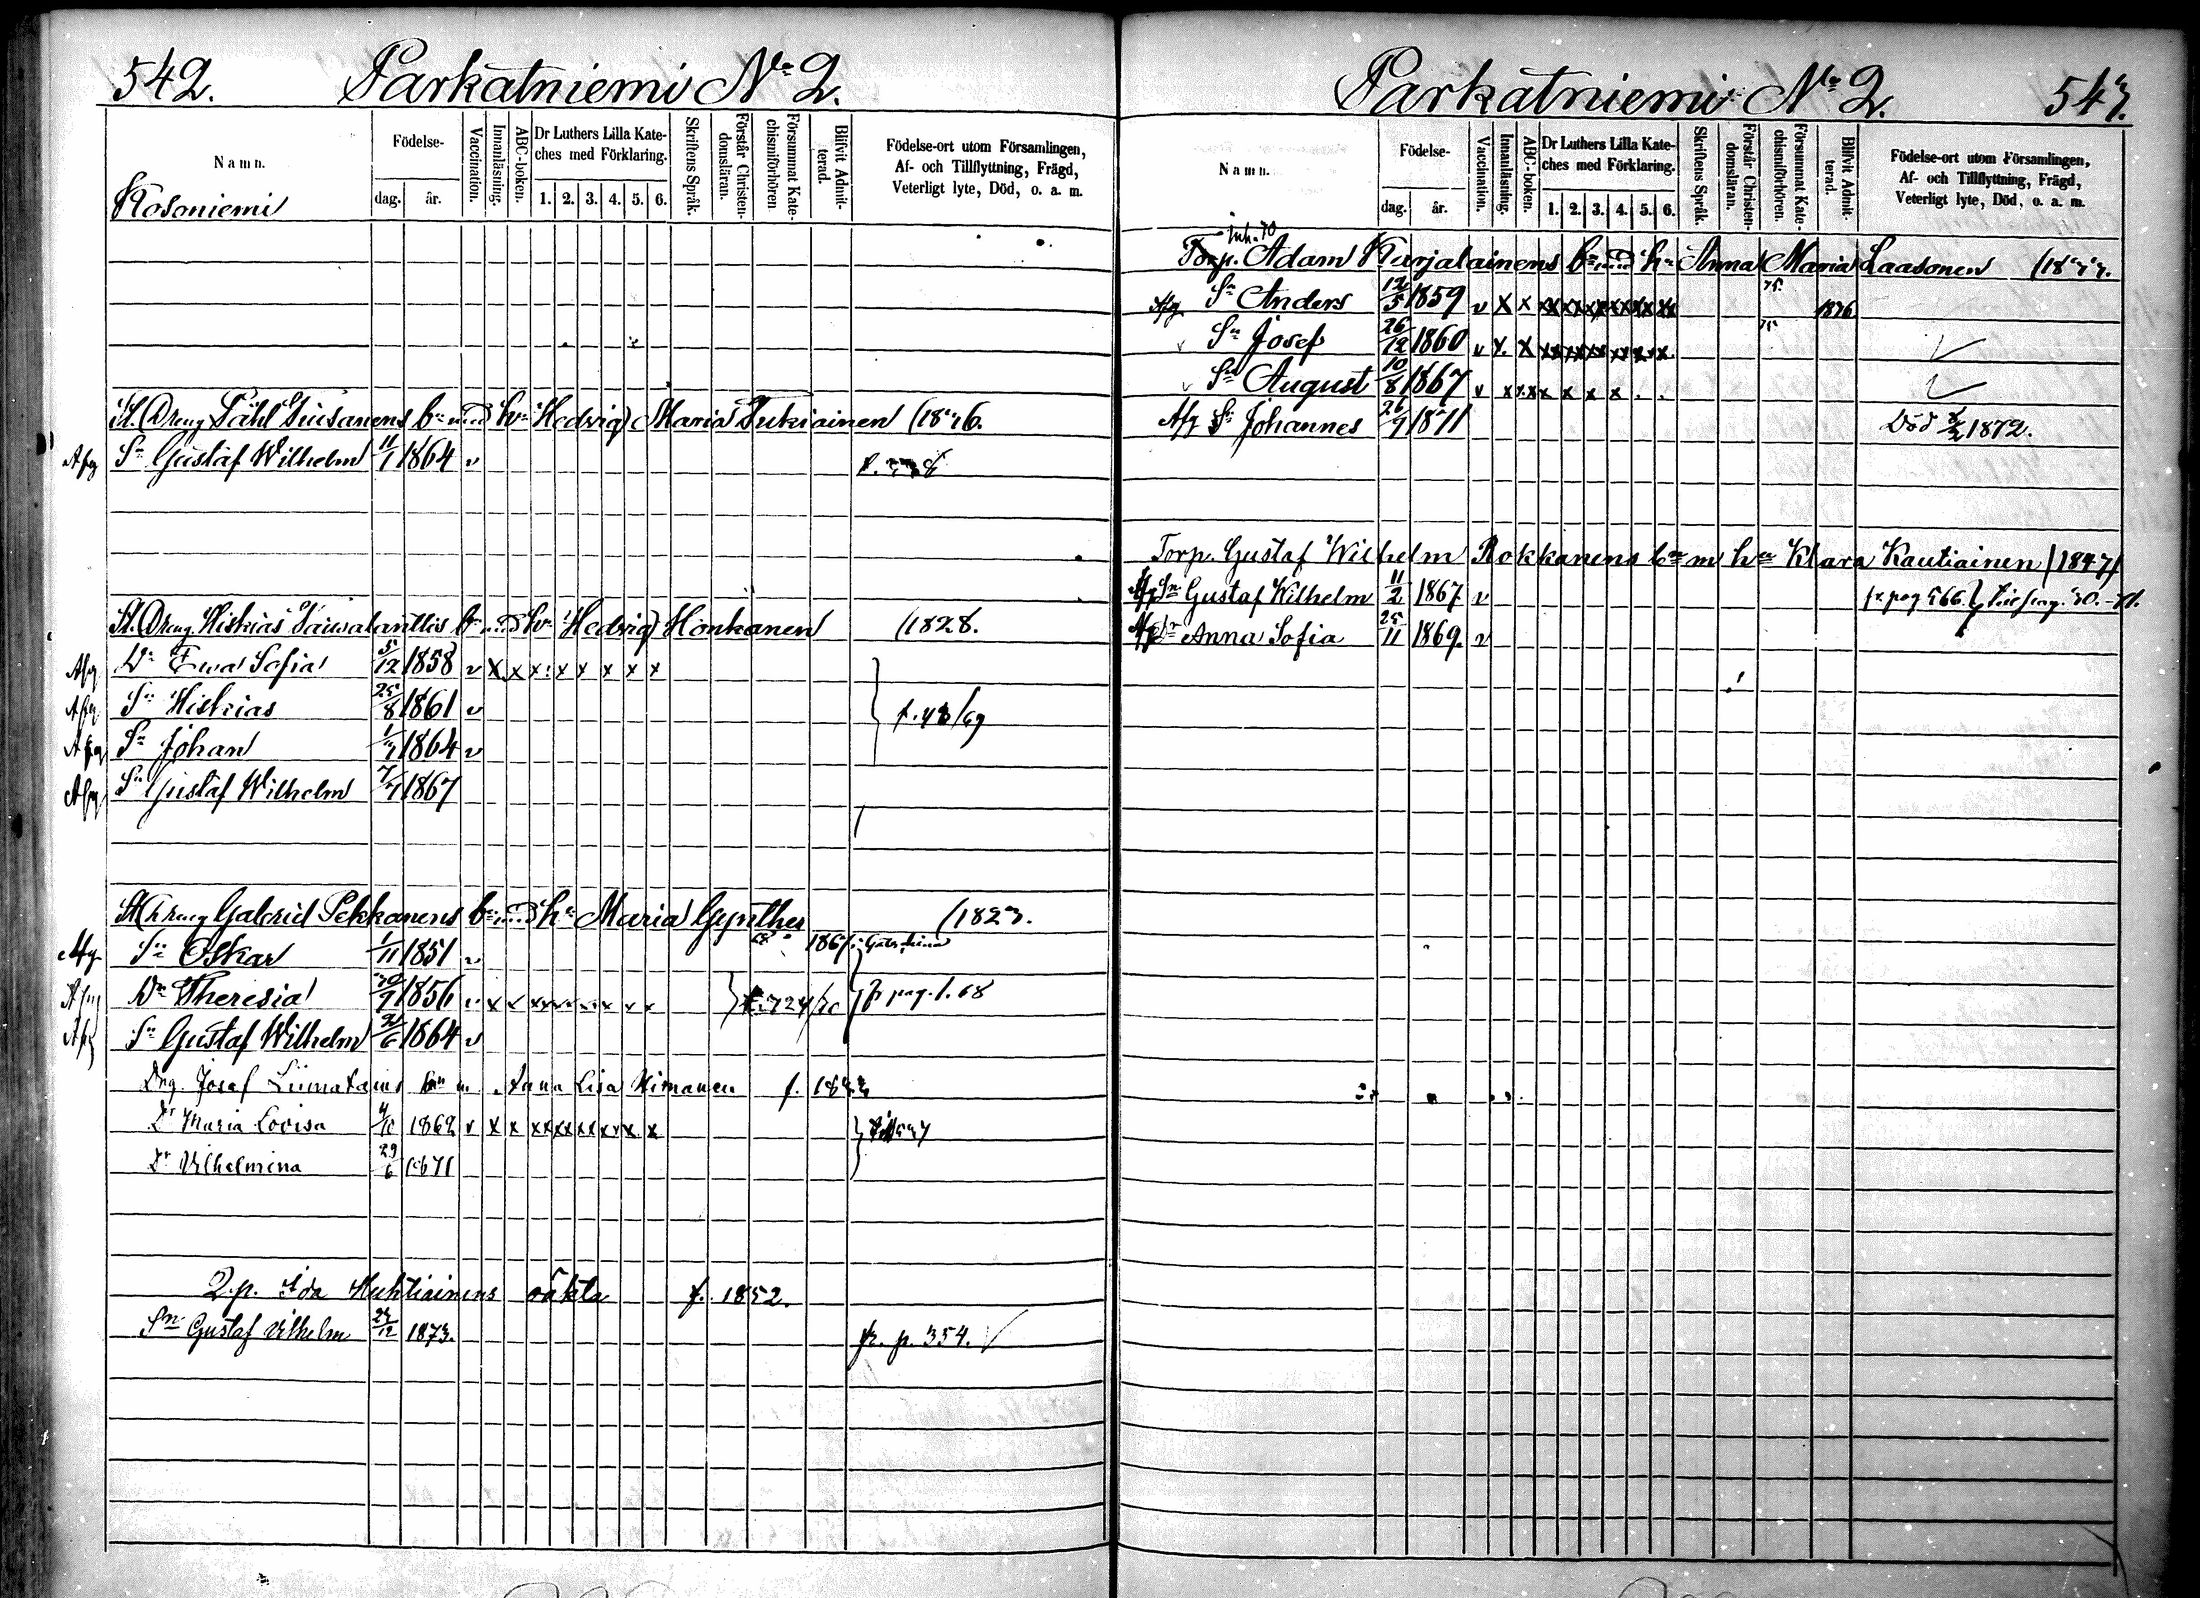 542. Parkatniemi No 2.
Namn.
Födelse-
dag. år.
Vaccination.
Innanläsning.
ABC-boken.
Dr Luthers Lilla Kateches med Förklaring.
1. 2. 3. 4. 5. 6.
Skriftens Språk.
Förstår Christendomsläran.
Försummat Katechismiförhören.
Blifvit Admitterad.
Födelse-ort utom Församlingen,
Af- och Tillflyttning, Frägd,
Veterligt lyte, Död, o. a. m.
Kosoniemi
St. Dreng Påhl bn m hu Hedvig Maria Tukiainen (1836.
Afg Sn Gustaf Wilhelm 11/1 1864 v
St. Dreng Hiskias bn m hu Hedvig Honkanen (1828.
Afg Dr Ewa Sofia 5/12 1858 v x x x x x x x x
Afg Sn Hiskias 25/8 1861 v f. 48/69
Afg Sn Johan 1864 v
Afg Sn Gustaf Wilhelm 1867
St Dreng Gabriel Pekkanens bn m hu Maria Gynther (1823.
Afg Sn Oskar 1/11 1851 v 1867
Afg Dr Theresia 1856 v x x x x x x x x pag. 1. 68
Afg Sn Gustaf Wilhelm 1864 v
Dng. Josef bn m Anna Lisa Himanen f.
Dr Maria Lovisa 4/10 1862 v x x xx xx xx xx x x
Dr Vilhelmina 29/6 1871
Q.p. Ida Huhtiainens oäkta f. 1852.
Sn Gustaf Vilhelm 1873. fr. p. 354. √
Parkatniemi No 2. 543.
Namn.
Födelse-
dag. år.
Vaccination.
Innanläsning.
ABC-boken.
Dr Luthers Lilla Kateches med Förklaring.
1. 2. 3. 4. 5. 6.
Skriftens Språk.
Förstår Christendomsläran.
Försummat Katechismiförhören.
Blifvit Admitterad.
Födelse-ort utom Församlingen,
Af- och Tillflyttning, Frägd,
Veterligt lyte, Död, o. a. m.
inh. 70
Torp. Adam Kurjalainens bn m hu Anna Maria Laasonen (1833.
Afg. Sn Anders 12/5 1859 v x x xx xx xx xx xx xx 75. 1876
Sn Josef 26/12 1860 v x. x xx xx xx xx xx x. 75
Sn August 10/8 1867 v x x x x x x x
Afg Sn Johannes 1871 Död 1872.
Torp. Gustaf Wilhelm Rokkanens bn m hu Klara Kautiainen (1847)
Afg Sn Gustaf Wilhelm 11/2 1867 v fr. pag 566.
Afg Dr Anna Sofia 25/11 1869. v